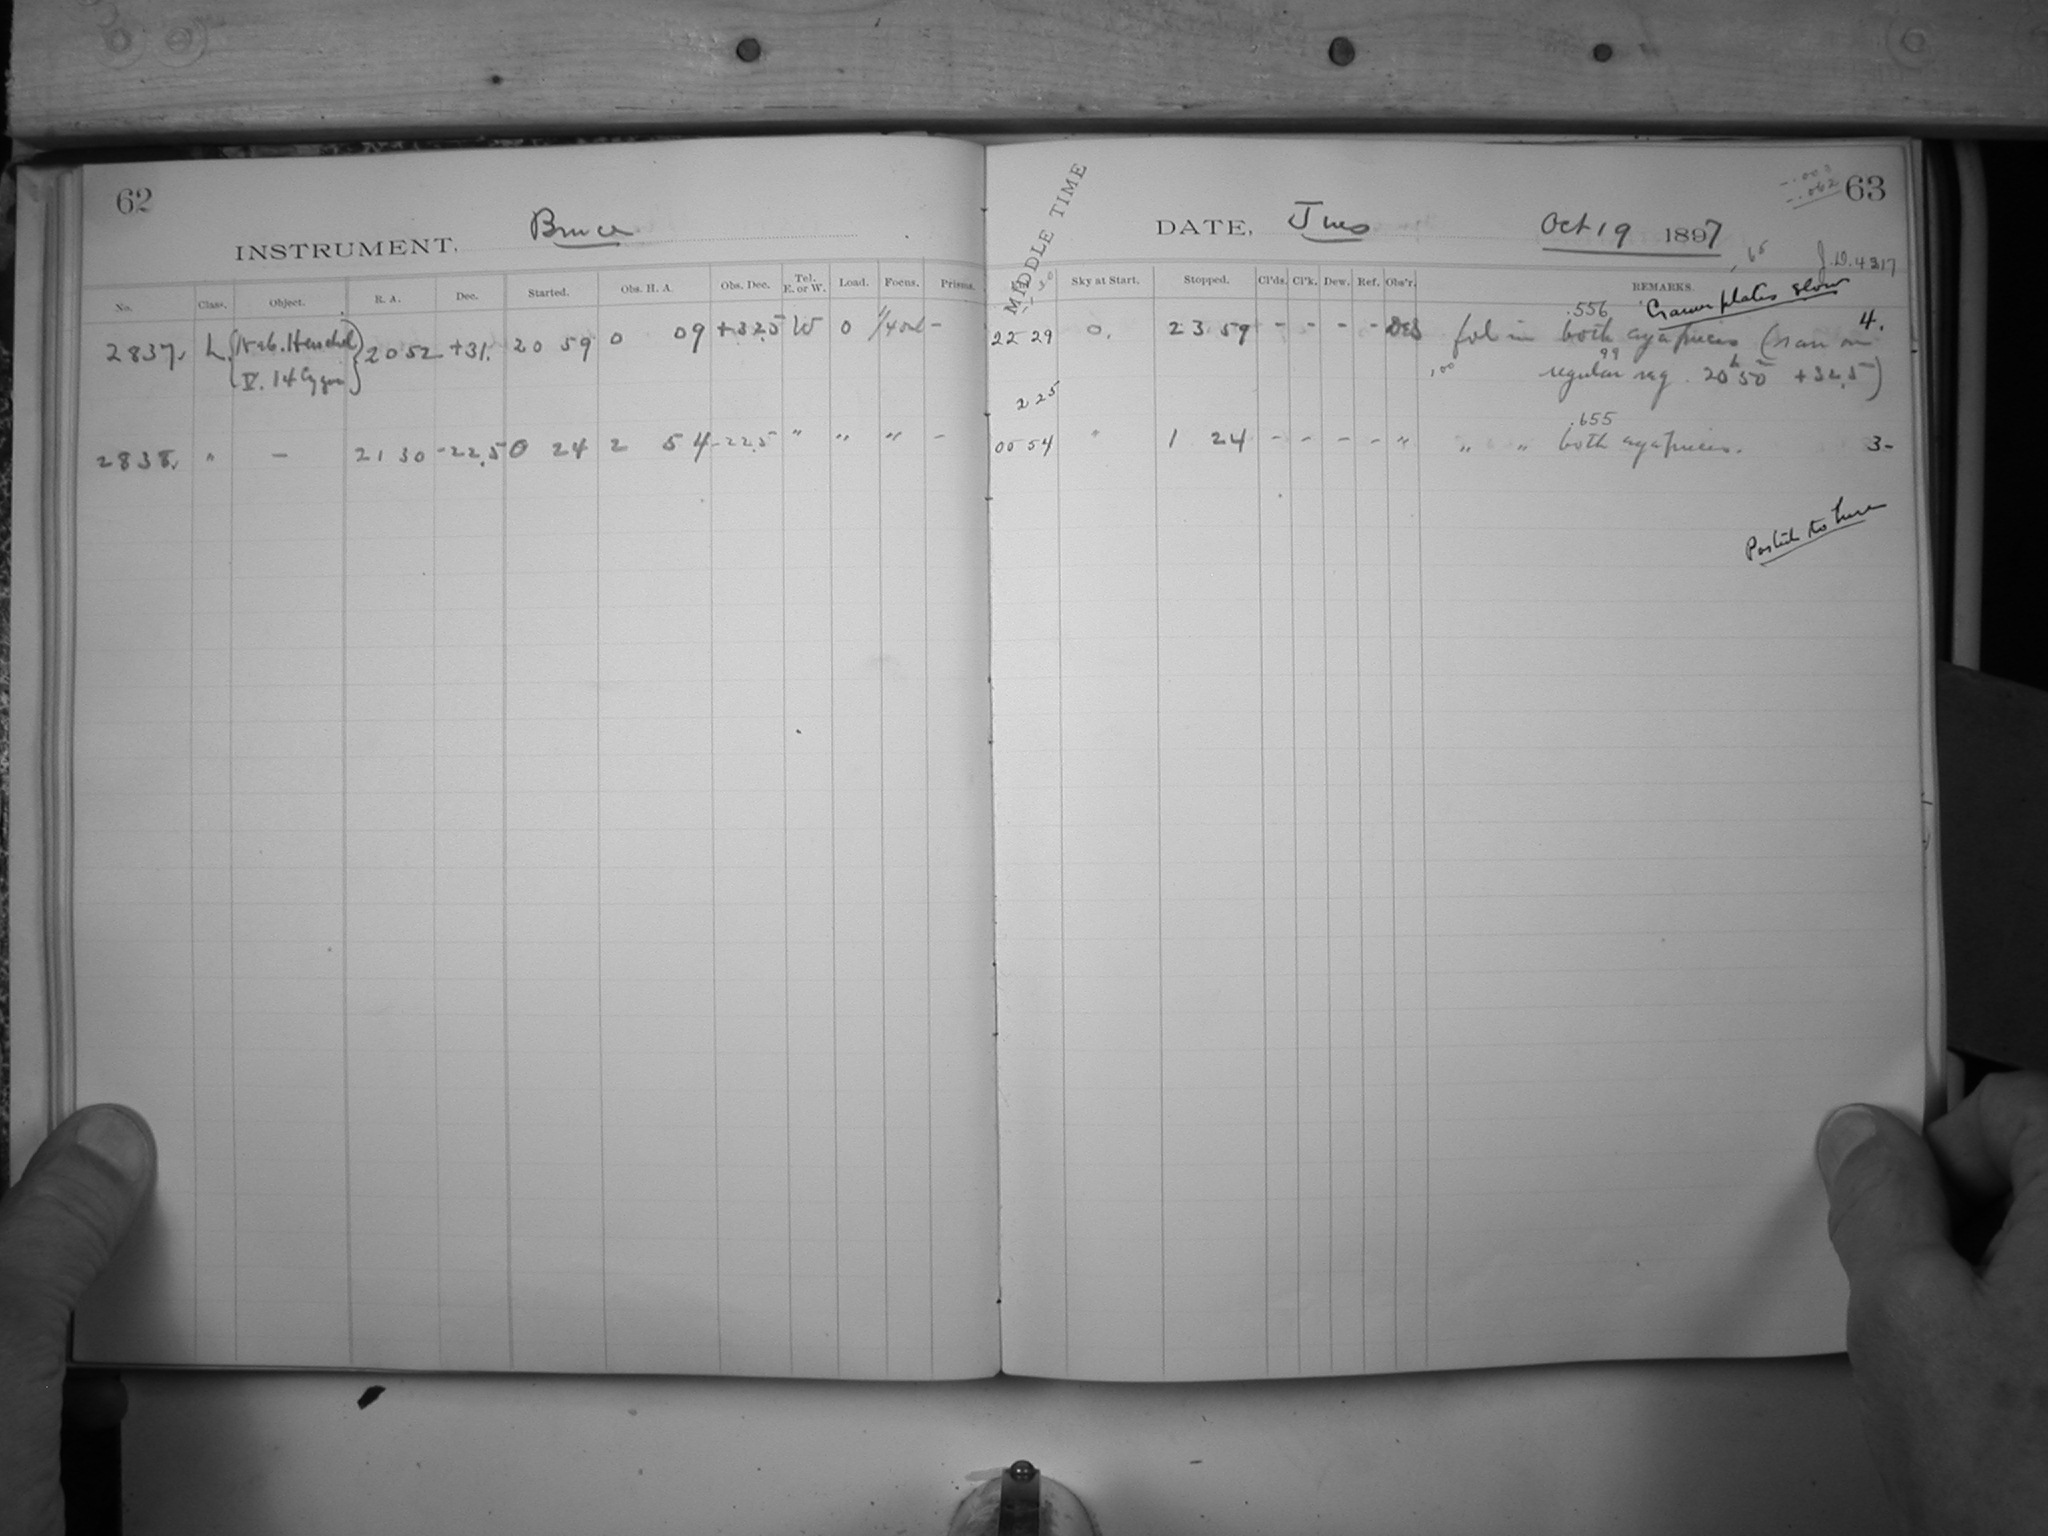 62
INSTRUMENT, Bruce
No. Class. Object. R. A. Dec. Started. Obs. H. A. Obs. Dec. Tel. E. or W. Load. Focus. Prisms.
2837. L. (Neb. Herschel 20 52 +31. 20 59 0 09 +32.5 W 0 -
V. 14 Cygni)
2838. " - 21 30 -22.5 0 24 2 54 -22.5 " " " -
MIDDLE TIME
-.062
63
DATE, Tues Oct 19 1897
J.D. 4217
Sky at Start. Stopped. Cl'ds. Cl'k. Dew. Ref. Obs'r. REMARKS.
.556 Cramer plates slow
22 29 0. 23 59 - - - - fol in both eyepieces ( 4.
.00 99
regular reg. 20h 50 +32.5)
2 25
.655
00 54 " 1 24 - - - - " " " both eyepieces. 3-
Posted to here